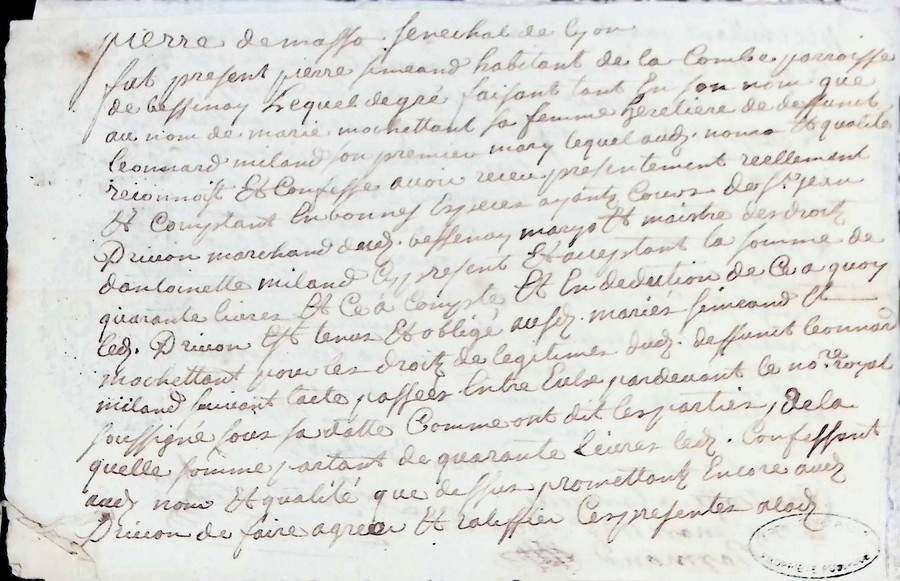 pierre de masso senechal de Lyon
fut present pierre simeand habitant de la Combe parroisse
de bessenay Lequel de gré faisant tant En son nom que
au nom de marie mochettant sa femme heretiere de deffunct
Leonnard miland son premier mary lequel audz. noms Et qualité
reconnoist Et Confesse avoir receu presentement reellement
Et Comptant En bonnes Especes ayantz Cours de Sr. jean
Drivon marchand dudz. bessenay mary Et maistre des droitz
dantoinette miland Cy present Et acceptant la somme de
quarante livres Et Ce à Compte Et En deduction de Ce a quoy
ledz. Drivon Est tenus Et obligé ausdz. mariés simeand Et
mochettant pour les droitz de legitimes dudz. deffunct Leonnard
miland suivant l'acte passées Entre Eulx pardevant le nore. royal
soussigné sous sa datte Comme ont dit les parties, de la
quelle somme partant de quarante Livres ledz. Confessant
audz nom Et qualité que dessus promettant Encore audz
Drivon de faire agreer Et ratiffier Ces presentes aladz
PROPRIÉTÉ PUBLIQUE